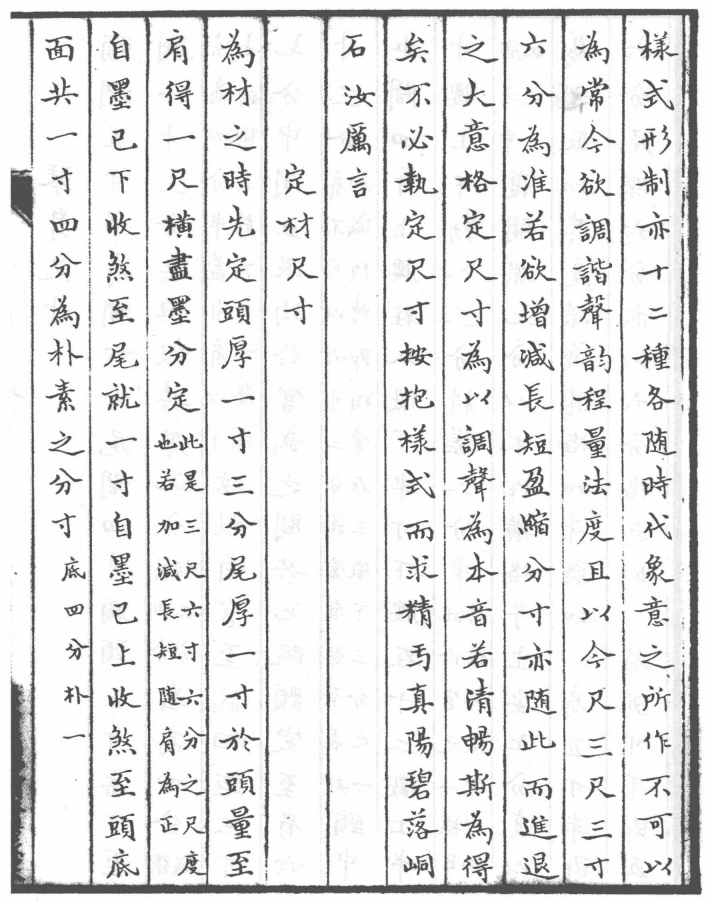 樣式形制亦十二種各随時代象意之所作不可以
為常今欲調諧聲韵程量法度且以今尺三尺三寸
六分為准若欲增減長短盈縮分寸亦随此而進退
之大意格定尺寸為以調聲為本音若清暢斯為得
矣不必執定尺寸按抱樣式而求精丐真陽碧落峒
石汝厲言
定材尺寸
為材之時先定頭厚一寸三分尾厚一寸於頭量至
肩得一尺橫盡墨分定此是三尺六寸六分之尺度也若加減長短随肩為正
自墨已下收煞至尾就一寸自墨已上收煞至頭底
面共一寸四分為朴素之分寸底四分朴一